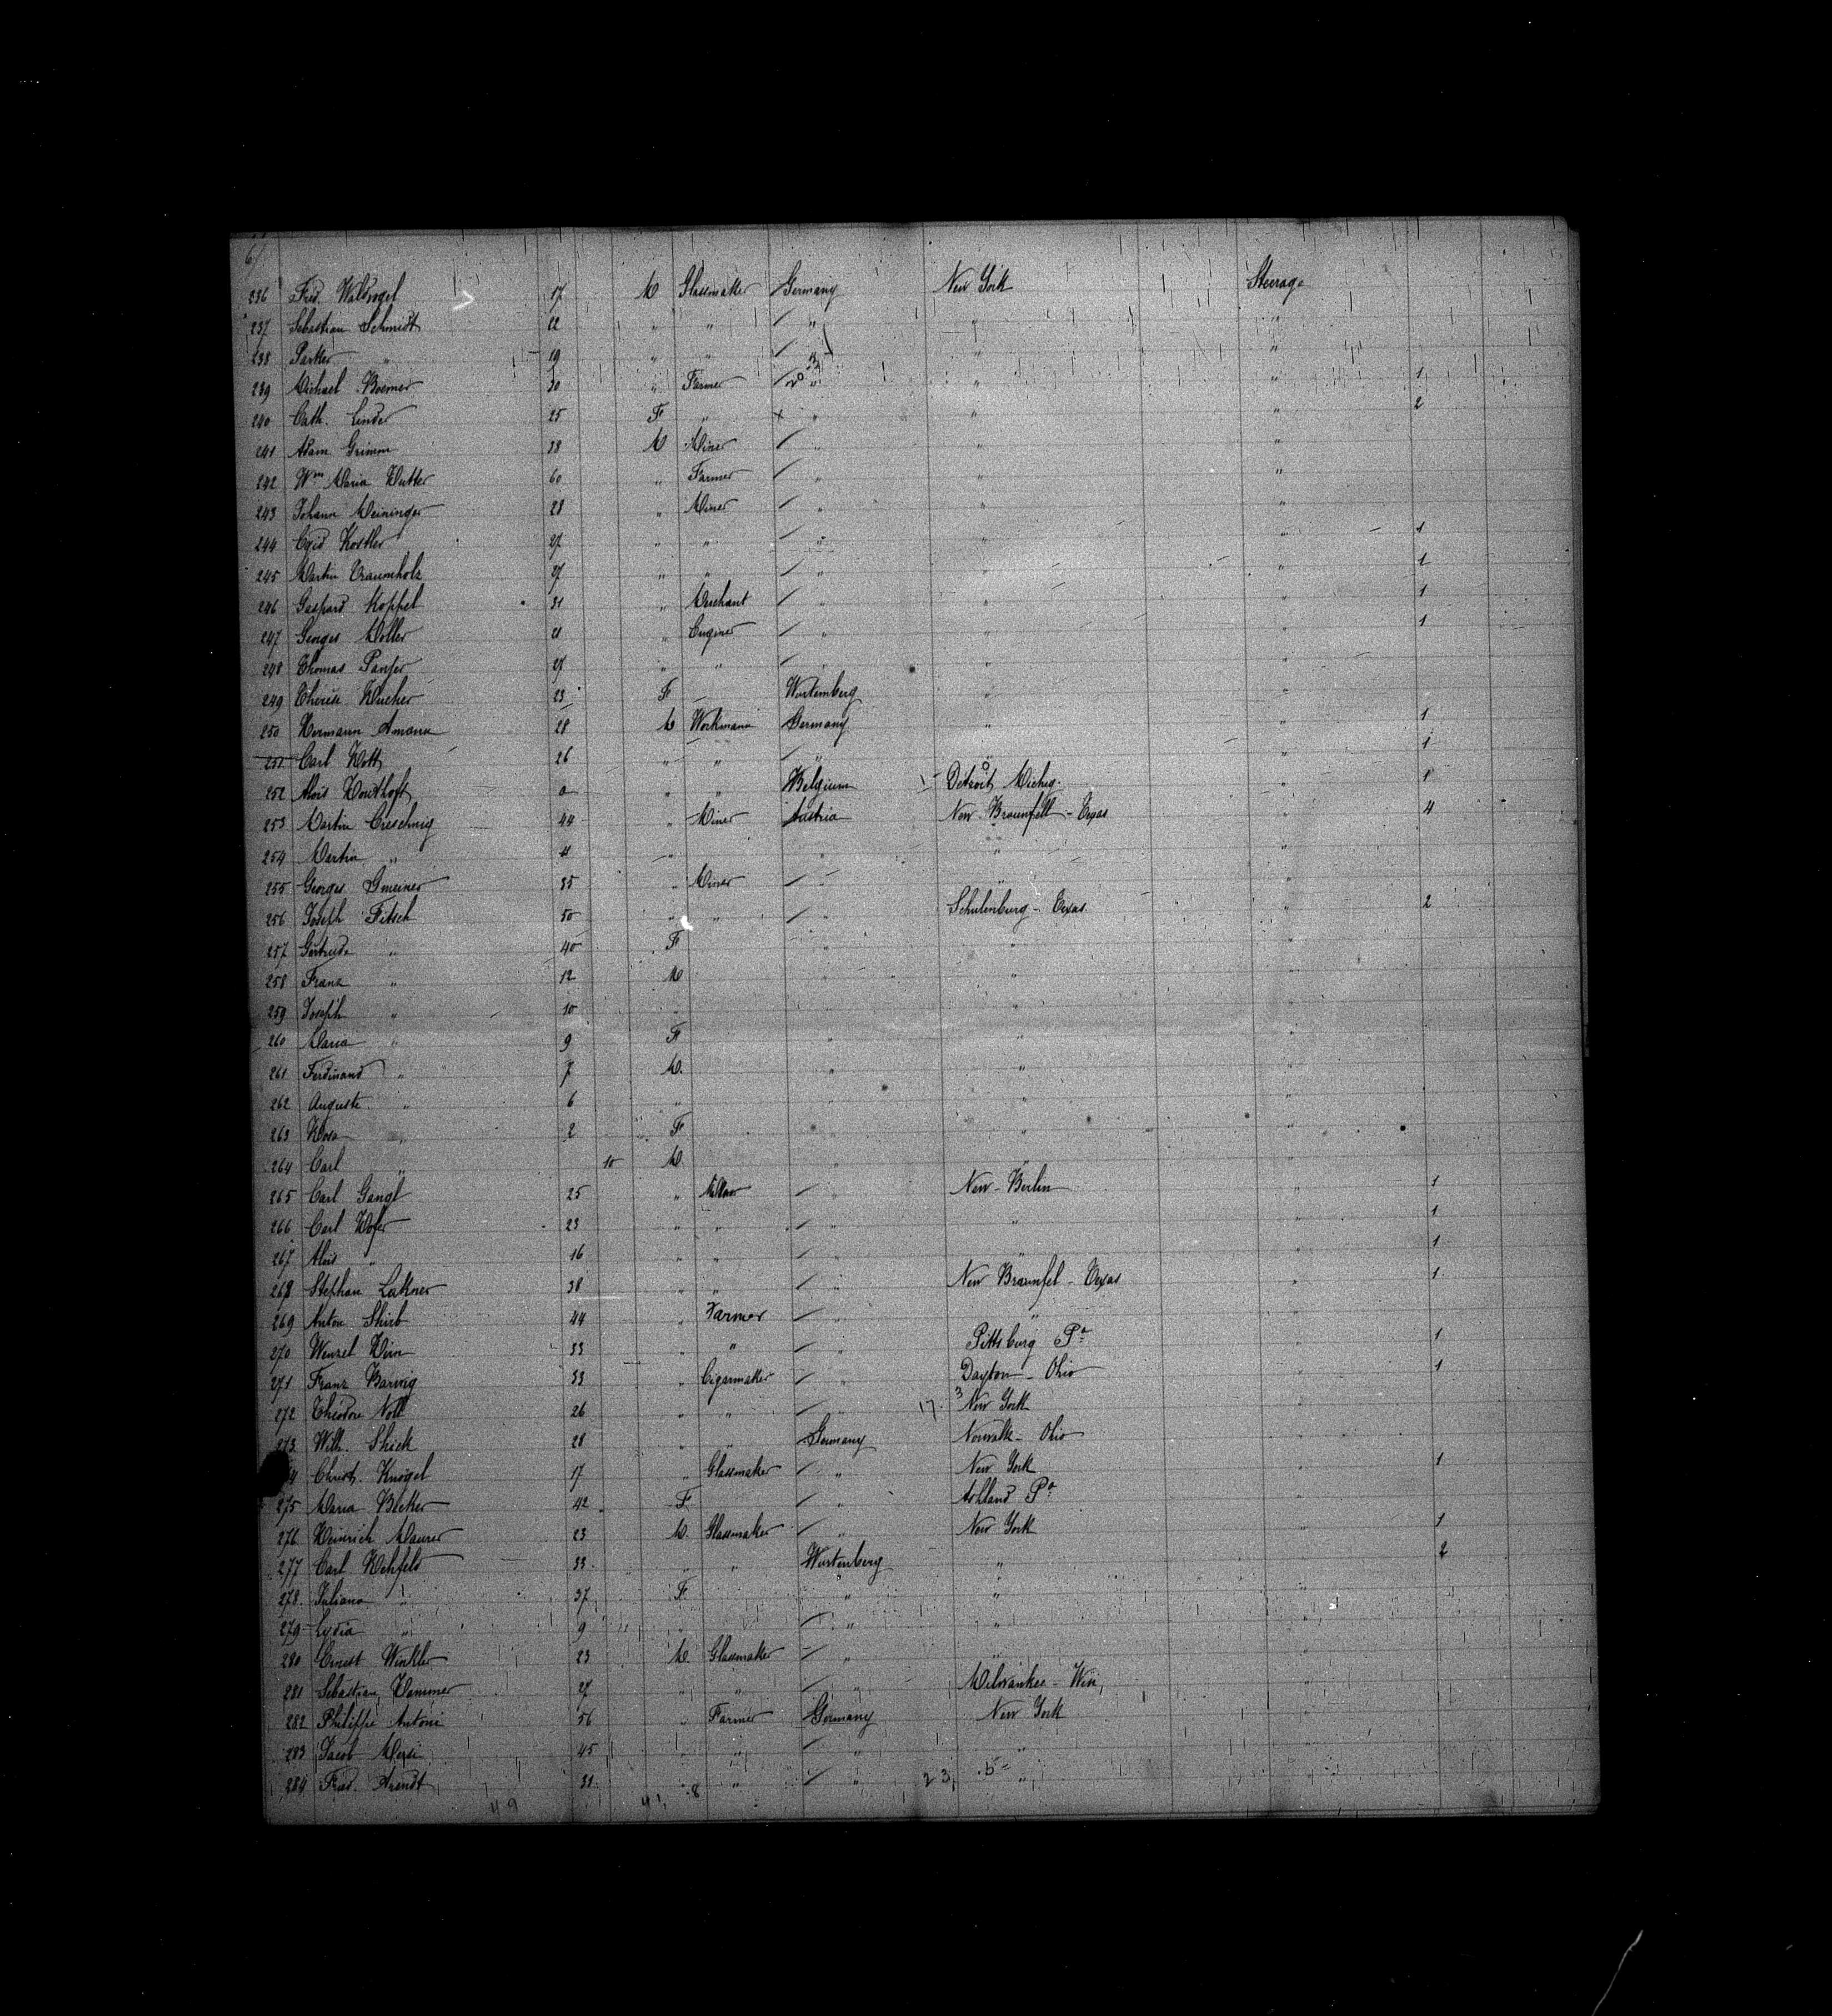 6/
236 Fred. Waldvogel 17 M Glassmaker Germany New York Steerage
237 Sebastian Schmidt 22 " " " " "
238 " 19 " " " " "
239 Michael Boemer 30 " Farmer " " " 1
240 Cath. Linder 25 F " " " " 2
241 Adam Grimm 38 M Miner " " "
242 Wm Maria Hutter 60 " Farmer " " "
243 Johann Meininger 28 " Miner " " "
244 Egid Kostler 27 " " " " " 1
245 Martin Traumholz 27 " " " " " 1
246 Gaspard Koppel 31 " Merchant " " " 1
247 Georges Moller 21 " Enginer " " " 1
248 Thomas Panzer 27 " " " " "
249 Therese Hucher 23 F Wurtemberg " "
250 Hermann Amann 28 M Workmann Germany " " 1
251 Carl Hott 26 " " " " " 1
252 Alois " " Belgium Detroit Michig. " 1
253 Martin Creschnig 44 " Miner Austria New Braunfell - Texas " 4
254 Martin " 11 " " " "
255 Georges Gmeiner 35 " Miner " " "
256 Joseph Fitsch 50 " " " Schulenburg - Texas " 2
257 Gertrude " 40 F " " "
258 Franz " 12 M " " "
259 Joseph " 10 " " " "
260 Maria " 9 F " " "
261 Ferdinand " 7 M. " " "
262 Auguste " 6 " " " "
263 Rosa " 2 F " " "
264 Carl " 10 M " " "
265 Carl Gangl 25 " " New-Berlin " 1
266 Carl Hofer 23 " " " " " 1
267 Alois " 16 " " " " " 1
268 Stephan Lakner 38 " " " New Braunfel - Texas " 1
269 Anton Shirb 44 " Farmer " " "
270 Wenzel Hirn 33 " " " Pittsburg Pa " 1
271 Franz Barwig 33 " Cigarmaker " Dayton - Ohio " 1
272 Theodore Noll 26 " " " 17 3 New York "
273 Wilh. Shick 28 " " Germany Norwalk - Ohio "
274 Christ. Knögel 17 " Glassmaker " New York " 1
275 Maria Becker 42 F " Ashland Pa "
276 Heinrich Maurer 23 M. Glassmaker " New York " 1
277 Carl Rehfeld 33 " " Wurtenberg " " 2
278 Juliana " 37 F " " "
279 Lydia " 9 " " " "
280 Ernest Winkler 23 M. Glassmaker " " "
281 Sebastian Hammer 27 " " " Milwaukee - Win, "
282 Philippe Antoni 56 " Farmer Germany New York "
283 Jacob 45 " " " " "
284 Fred. Arendt 31 " " " 23 5 " "
49 41 8